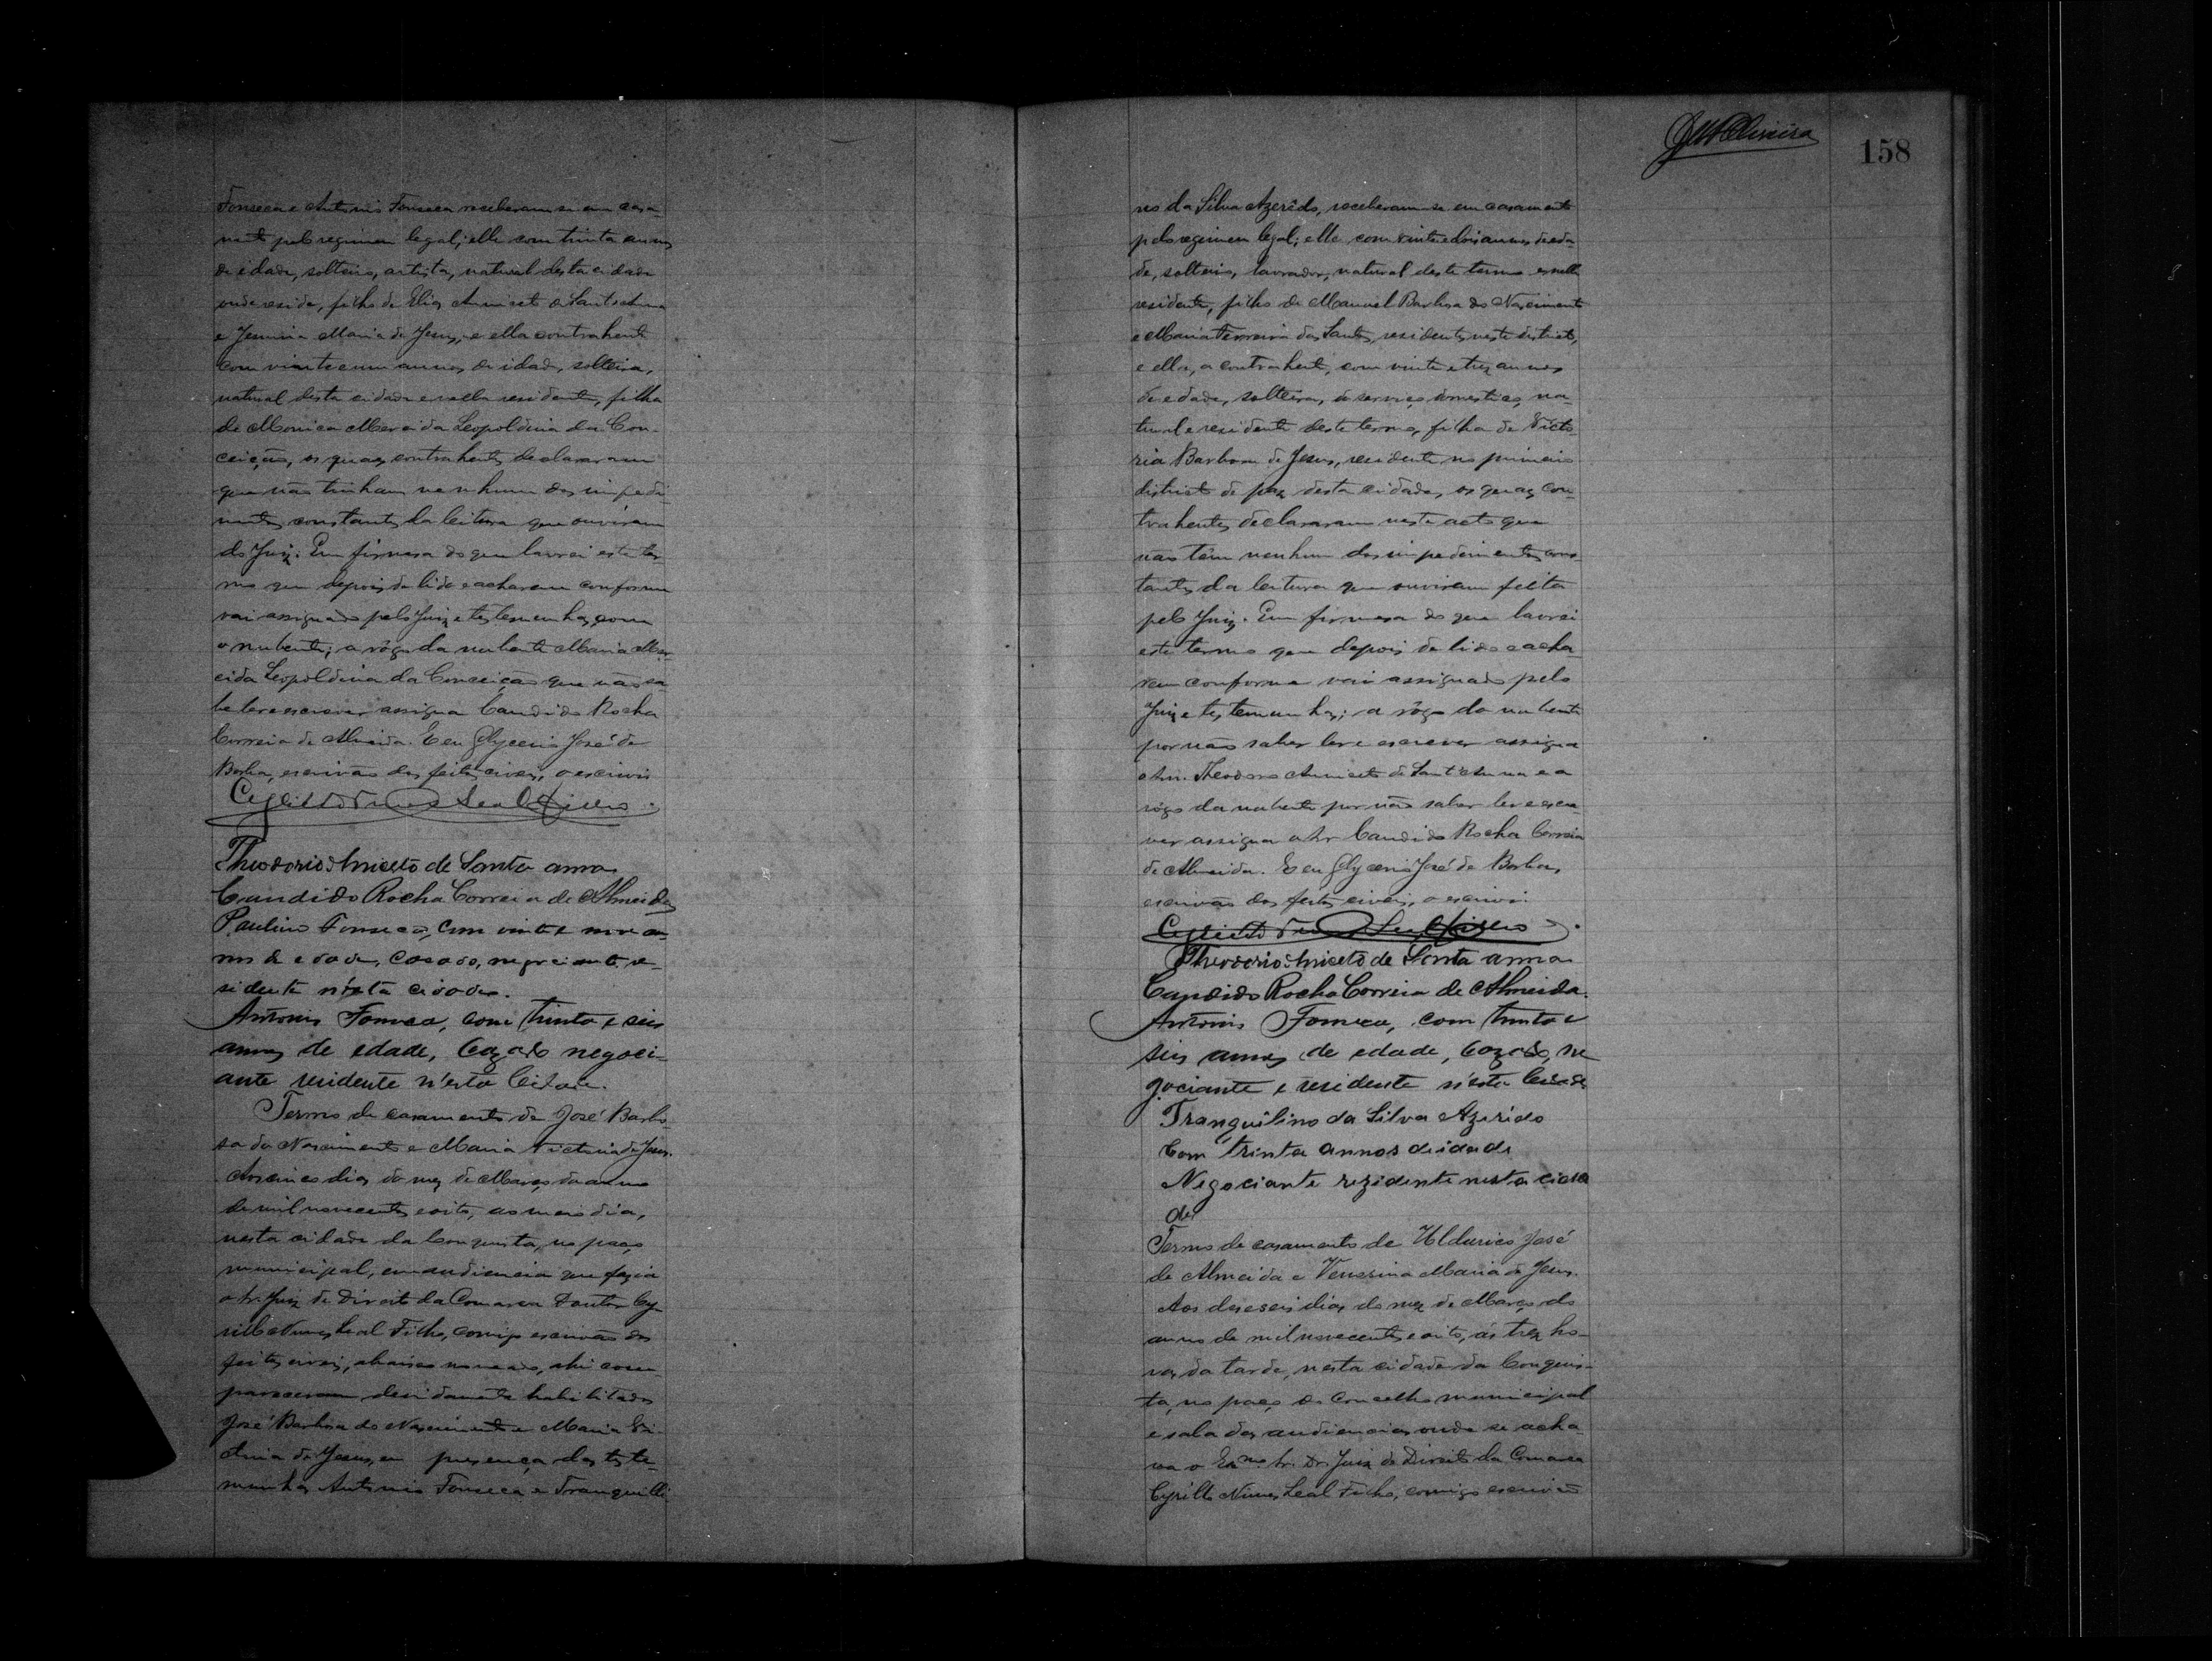 Fonseca e Antonio Fonseca receberam-se em casa-
mento pelo regimen legal; elle com trinta annos
de idade, solteiro, artista, natural desta cidade
onde reside, filho de Elias Aniceto de Sant'Anna
e Jesuina Maria de Jesus, e ella contrahente
com vinte e um annos de idade, solteira,
natural desta cidade e nella residente, filha
de Monica Leopoldina da Con-
ceição, os quaes contrahentes declararam
que não tinham nenhum dos impedi-
mentos constantes da leitura que ouviram
do Juiz. Em firmesa do que lavrei este ter-
mo que depois de lido e acharem conforme
vai assignado pelo Juiz e testemunhas, com
o nubente; a rôgo da nubente Maria Mer-
cida Leopoldina da Conceição que não sa-
be ler e escrever assigna Candido Rocha
Correia de Almeida. E eu Glycerio José de
Borba, escrivão dos feitos civeis, o escrivi
Theodorio Aniceto de Santa anna
Candido Rocha Correia de Almeida
Paulino Fonseca, com vinte e nove an-
nos de edade, Casado, negociante re-
sidente n'esta cidade.
Antonio Fonseca, com trinta e seis
annos de edade, Cazado negoci-
ante residente n'esta Cidade.
Termo de casamento de José Barbo-
sa do Nascimento e Maria Victoria de Jesus.
Aos cinco dias do mez de Março do anno
de mil novecentos e oito, ao meio dia,
nesta cidade da Conquista, no paço
municipal, em audiencia que fazia
o Sr. Juiz de Direito da Comarca Doutor Cy-
rillo Nunes Leal Filho, comigo escrivão dos
feitos civeis, abaixo nomeado, ahi com-
pareceram devidamente habilitados
José Barbosa do Nascimento e Maria Vi-
ctoria de Jesus, em presença das teste-
munhas Antonio Fonseca e Tranquilli-
158
no da Silva Azerêdo, receberam-se em casamento
pelo regimen legal; elle com vinte e dois annos de eda-
de, solteiro, lavrador, natural deste termo e nelle
residente, filho de Manuel Barbosa do Nascimento
e Maria Ferreira dos Santos, residentes neste districto,
e ella, a contrahente, com vinte e trez annos
de edade, solteira, de serviços domesticos, na-
tural e residente deste termo, filha de Victo-
ria Barbosa de Jesus, residente no primeiro
districto de paz desta cidade, os quaes con-
trahentes declararam neste acto que
não têm nenhum dos impedimentos cons-
tantes da leitura que ouviram feita
pelo Juiz. Em firmesa do que lavrei
este termo que depois de lido e acha-
rem conforme vai assignado pelo
Juiz e testemunhas; a rôgo do nubente
por não saber ler e escrever assigna
o Sr. Theodoro Aniceto de Sant'Anna e a
rôgo da nubente por não saber ler e escre-
ver assigna o Sr Candido Rocha Correia
de Almeida. E eu Glycerio José de Borba,
escrivão dos feitos civeis, o escrivi.
Theodorio Aniceto de Santa anna
Candido Rocha Correia de Almeida.
Antonio Fonseca, com trinta e
seis annos de edade, Cazado, ne-
gociante e residente n'esta Cidade
Tranquilino da Silva Azerido
Com trinta annos de idade
Negociante rezidente nesta cida
de
Termo de casamento de Uldurico José
de Almeida e Venerina Maria de Jesus.
Aos deseseis dias do mez de Março do
anno de mil novecentos e oito, ás trez ho-
ras da tarde, nesta cidade da Conquis-
ta, no paço do Concelho municipal
e sala das audiencias onde se acha-
va o Exmo Sr. Dr. Juiz de Direito da Comarca
Cyrillo Nunes Leal Filho, comigo escrivão